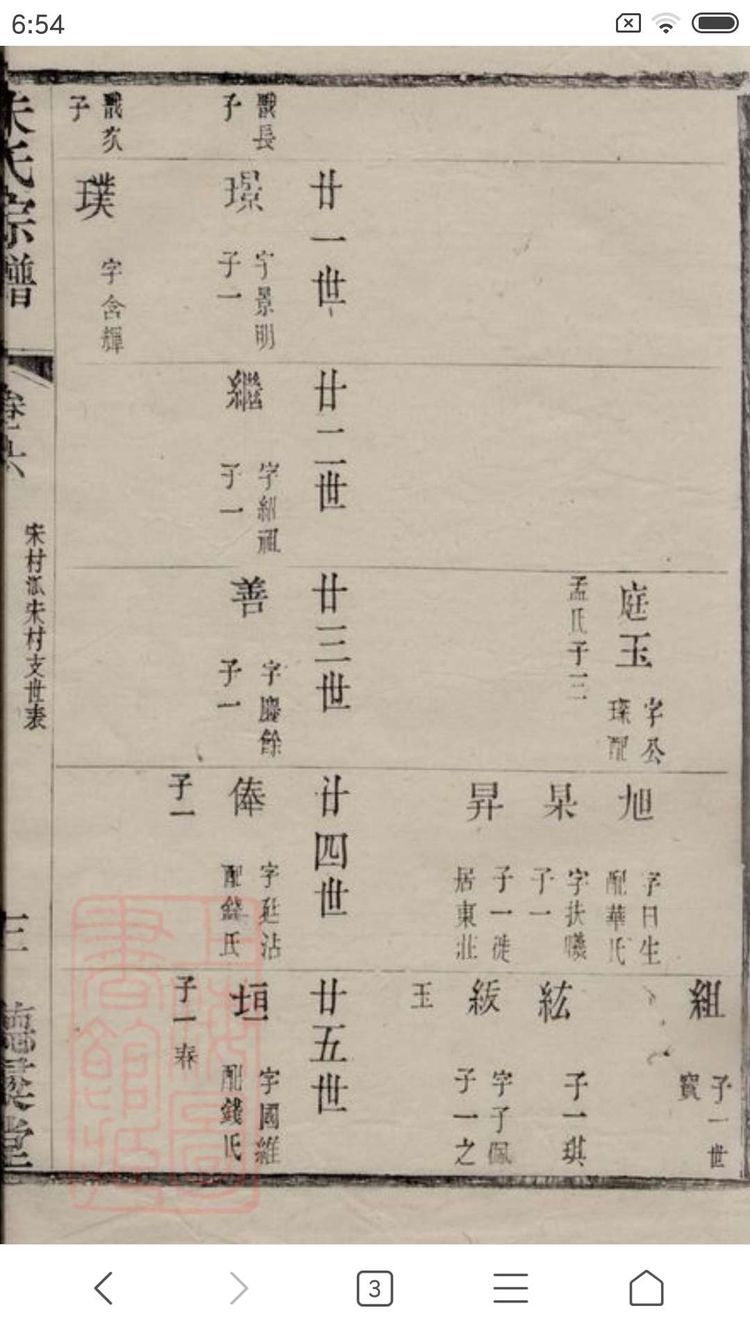 6:54
組
子一世
寶
庭玉
字公
璨配
孟氏子三
旭
字日生
配華氏
杲
字扶曦
子一
紘
子一琪
昇
子一徙
居東莊
紱
字子佩
子一之
玉
廿一世
廿二世
廿三世
廿四世
廿五世
戩長
子
璟
字景明
子一
繼
字紹祖
子一
善
字慶餘
子一
俸
字廷沾
配錢氏
子一
垣
字國維
配錢氏
子一
戩次
子
璞
字含輝
朱氏宗譜
宋村派宋村支世表
三
3